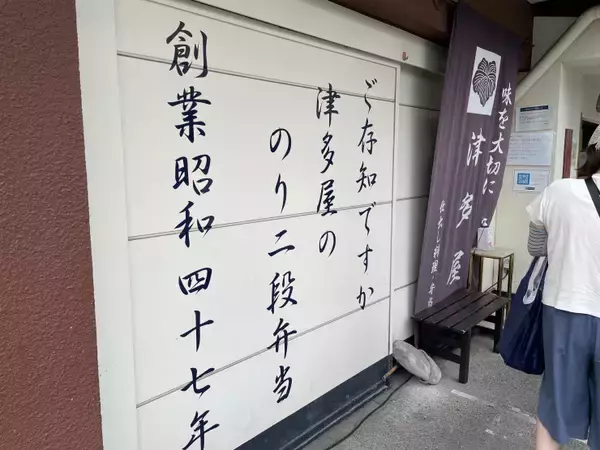 ご存知ですか
津多屋の
のり二段弁当
創業昭和四十七年
味を大切に
津多屋
仕出し料理・弁当